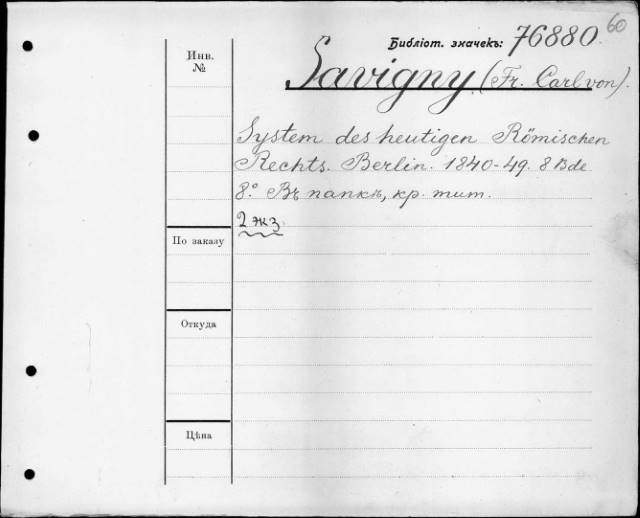 60
Библіот. значекъ: 76880.
Инв.
№
Savigny (Fr. Carl von).
System des heutigen Römischen
Rechts. Berlin. 1840-49. 8 Bde
8.° Въ папкѣ, кр. тит.
2 экз.
По заказу
Откуда
Цѣна